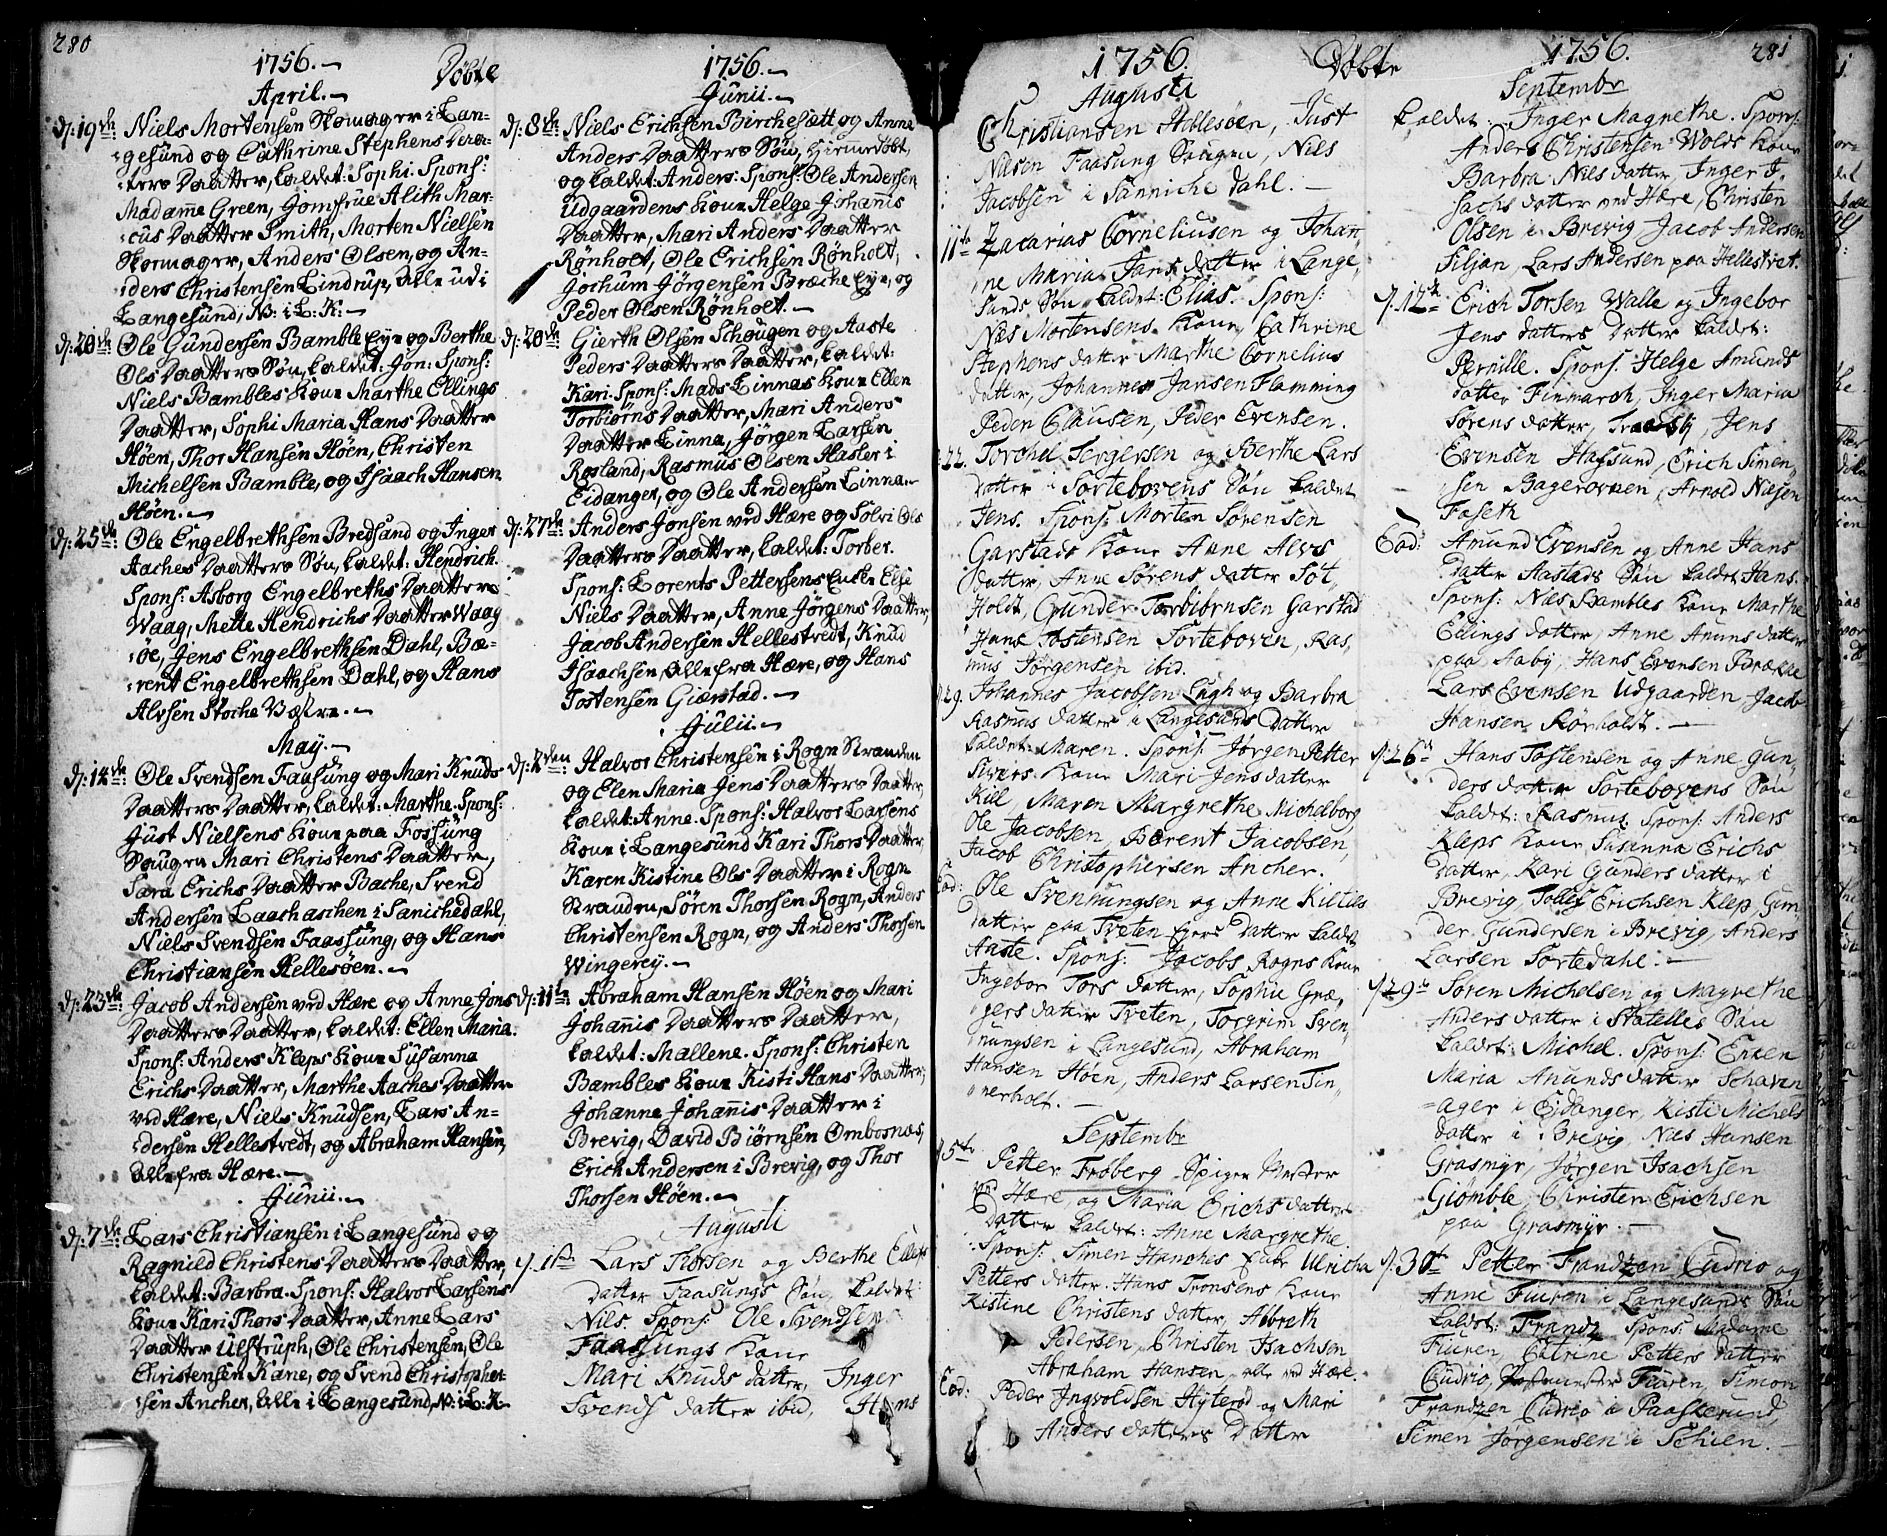 280
1756.
Døbte
April.
d: 19de: Niels Mortensen Skomager i Lan-
gesund og Cathrine Stephens Daat-
ters Daatter, kaldet: Sophi. Spons:
Madame Green, Jomfrue Alith Mar-
cus Daatter Smith, Morten Nielsen
Skomager, Anders Olsen, og An-
ders Christensen Lindrup, alle udi
Langesund, N: i L: K:
d: 20de: Ole Gundersen Bamble Eye og Berthe
Ols Daatters Søn, kaldet: Jon: Spons:
Niels Bambles Kone Marthe Ellings
Daatter, Sophi Maria Hans Daatter
Høen, Thor Hansen Høen, Christen
Michelsen Bamble, og Isaach Hansen
Høen.
d: 25de: Ole Engelbrethsen Bredsand og Inger
Aaches Daatters Søn, kaldet: Hendrich.
Spons: Asborg Engelbreths Daatter
Waag, Mette Hendrichs Daatter Waag
øe, Jens Engelbrethsen Dahl, Bæ-
rent Engelbrethsen Dahl, og Hans
Alvsen Stoche
May.
d: 12de: Ole Svendsen Faasung og Mari Knuds
Daatters Daatter, kaldet: Marthe. Spons:
Just Nielsens Kone paa Fossung
Sougen Mari Christens Daatter,
Sara Erichs Daatter Bache, Svend
Andersen Laachaschen i Sanichedahl,
Niels Svendsen Faassung, og Hans
Christiansen Hellesøen.
d: 23de: Jacob Andersen ved Hære og Anne Jons
Daatters Daatter, kaldet: Ellen Maria.
Spons: Anders Kleps Kone Susanna
Erichs Daatter, Marthe Aaches Daatter
ved Hære, Niels Knudsen, Lars An-
dersen Hellestvedt, og Abraham Hansen,
alle fra Hære.
Junii.
d: 7de: Lars Christiansen i Langesund og
Ragnild Christens Daatters Daatter,
kaldet: Barbra. Spons: Halvor Larsens
Kone Kari Thors Daatter, Anne Lars
Daatter Ulstruph, Ole Christensen, Ole
Christensen Kane, og Svend Christopher-
sen Ancher, alle i Langesund, N: i L: K:
1756.
Junii.
d: 8de: Niels Erichsen Birchesætt og Anne
Anders Daatters Søn, hiemmedøbt,
og kaldet: Anders: Spons: Ole Andersen
Udgaardens Kone Helge Johannis
Daatter, Mari Anders Daatter
Rønholt, Ole Erichsen Rønholt,
Jochum Jörgensen Bræche Eye, og
Peder Olsen Rønholt.
d: 20de: Gierth Olsen Schougen og Aaste
Peders Daatters Daatter, kaldet:
Kari. Spons: Mads Linnas Kone Ellen
Torbiørns Daatter, Mari Anders
Daatter Linna, Jörgen Larsen
Røsland, Rasmus Olsen Hasler i
Eidanger, og Ole Andersen Linna.
d: 27de: Anders Jonsen ved Hære og Solvi Ols
Daatters Daatter, kaldet: Torber.
Spons: Lorents Pettersens Enke Else
Niels Daatter, Anne Jørgens Daatter,
Jacob Andersen Hellestvedt, Knud
Isaachsen, alle fra Hære, og Hans
Tostensen Gierstad.
Julii.
d: 2den: Halvor Christensen i Rogn Stranden
og Elen Maria Jens Daatters Daatter,
kaldet: Anne. Spons: Halvor Larsens
Kone i Langesund Kari Thors Daatter,
Karen Kistine Ols Daatter i Rogn
Stranden, Sören Thorsen Rogn, Anders
Christensen Rogn, og Anders Thorsen
Wingerey.
d: 11te: Abraham Hansen Høen og Mari
Johannis Daatters Daatter,
kaldet: Mallene. Spons: Christen
Bambles Kone Kisti Hans Daatter,
Johanne Johannis Daatter i
Brevig, David Biørnsen Ombosnæs,
Erich Andersen i Brevig, og Thor
Thorsen Høen.
Augusti
d. 1ste Lars Thorsen og Berthe Ellefs
datter Faasungs Søn, kaldet:
Nils. Spons: Ole Svendsen
Faassungs Kone
Mari Knuds datter, Inger
Svends datter ibid, Hans
1756.
Døbte
Augusti
Christiansen Hellesøen, Just
Nilsen Faasung Sougen, Nils
Jacobsen i Sanniche dahl.
11te Zacarias Corneliusen og Johan
ne Maria Jans datter i Lange
sunds Søn kaldet: Elias. Spons:
Nils Mortensens Kone Cathrine
Stephens datter Marthe Cornelius
datter, Johannes Jansen Flamming
Peder Clausen, Peder Evensen.
22. Torchel Jergersen og Berthe Lars
datter i Sortebovens Søn kaldet
Jens. Spons: Morten Sørensen
Garstads Kone Anne Alvs
datter, Anne Sørens datter Søt,
Holdt, Gunder Torbiörnsen Garstad
Hans Tostensen Sorteboven, Ras,
mus Jørgensen ibid.
29. Johannes Jacobsen Lugh og Barbra
Rasmus datter i Langesunds datter
kaldet: Maren. Spons: Jørgen Petter
Sivers Kone Mari Jens datter
Kiil, Maren Margrethe Michelborg,
Ole Jacobsen, Bærent Jacobsen,
Jacob Christophersen Ancher.
Eod: Ole Svennungsen og Anne Kittils
datter paa Tveten Eyers datter kaldet
Aaste. Spons: Jacobs Rogns Kone
Ingebor Tors datter, Sophie Græ,
gers datter Tveten, Torgrim Sven,
nungsen i Langesund, Abraham
Hansen Høen, Anders Larsen Tin,
nerholt.
Septembr
5te Petter Frøberg Spiger Mester
ved Hære og Maria Erichs datters
datter kaldet: Anne Margrethe
Spons: Simen Hanches Enke Ulricha
Petters datter. Hans Tronsens Kone
Kistine Christens datter, Abbreth
Pedersen, Christen Isachsen
Abraham Hansen, alle ved Hære.
Eod: Peder Ingvoldsen Hyterød og Mari
Anders datters Datter
1756.
281
Septembr
kaldet: Inger Magrethe. Spons:
Anders Christensen Wolds Kone
Barbra Nils datter, Inger I,
sachs datter ved Hære, Christen
Olsen i Brevig Jacob Andersen
Siljan Lars Andersen paa Hellestvet.
d. 12te Erich Torsen Walle og Ingebor
Jens datters datter kaldet:
Pernille. Spons: Helge Amunds
datter Finmarch, Inger Maria
Sørens datter, Traasby, Jens
Evensen Hafsund, Erich Simen,
sen Bagerovnen, Arnold Nilsen
Faseth
Eod: Amund Evensen og Anne Hans
datter Aastads Søn kaldet Hans.
Spons: Nils Bambles Kone Marthe
Ellings datter, Anne Anuns datter
paa Aaby, Hans Evensen Brække
Lars Evensen Udgaarden, Jacob
Hansen Rørholdt.
d. 26de Hans Tostensen og Anne Gun,
ders datter Sortebovens Søn
kaldet: Rasmus Spons: Anders
Kleps Kone Susanna Erichs
datter, Kari Gunders datter i
Brevig, Tollef Erichsen Klep, Gun,
der Gundersen i Brevig, Anders
Larsen Sortedahl.
d. 29de Søren Michelsen og Magrethe
Anders datter i Statelles Søn
kaldet: Michel. Spons: Enken
Maria Anunds datter Schaven
ager i Eidanger, Kisti Michels
datter i Brevig, Nils Hansen
Grasmyr, Jørgen Isachsen
Giømble, Christen Erichsen
paa Grasmyr.
d. 30te Petter Frandzen Cudrio og
Anne Fiuren i Langesunds Søn
kaldet: Frandz Spons: Madame
Fiuren, Catrine Petters datter
Cudrio, Fiuren, Simon
Frandzen Cudrio i Paaskesund,
Simen Jørgensen i Schien.